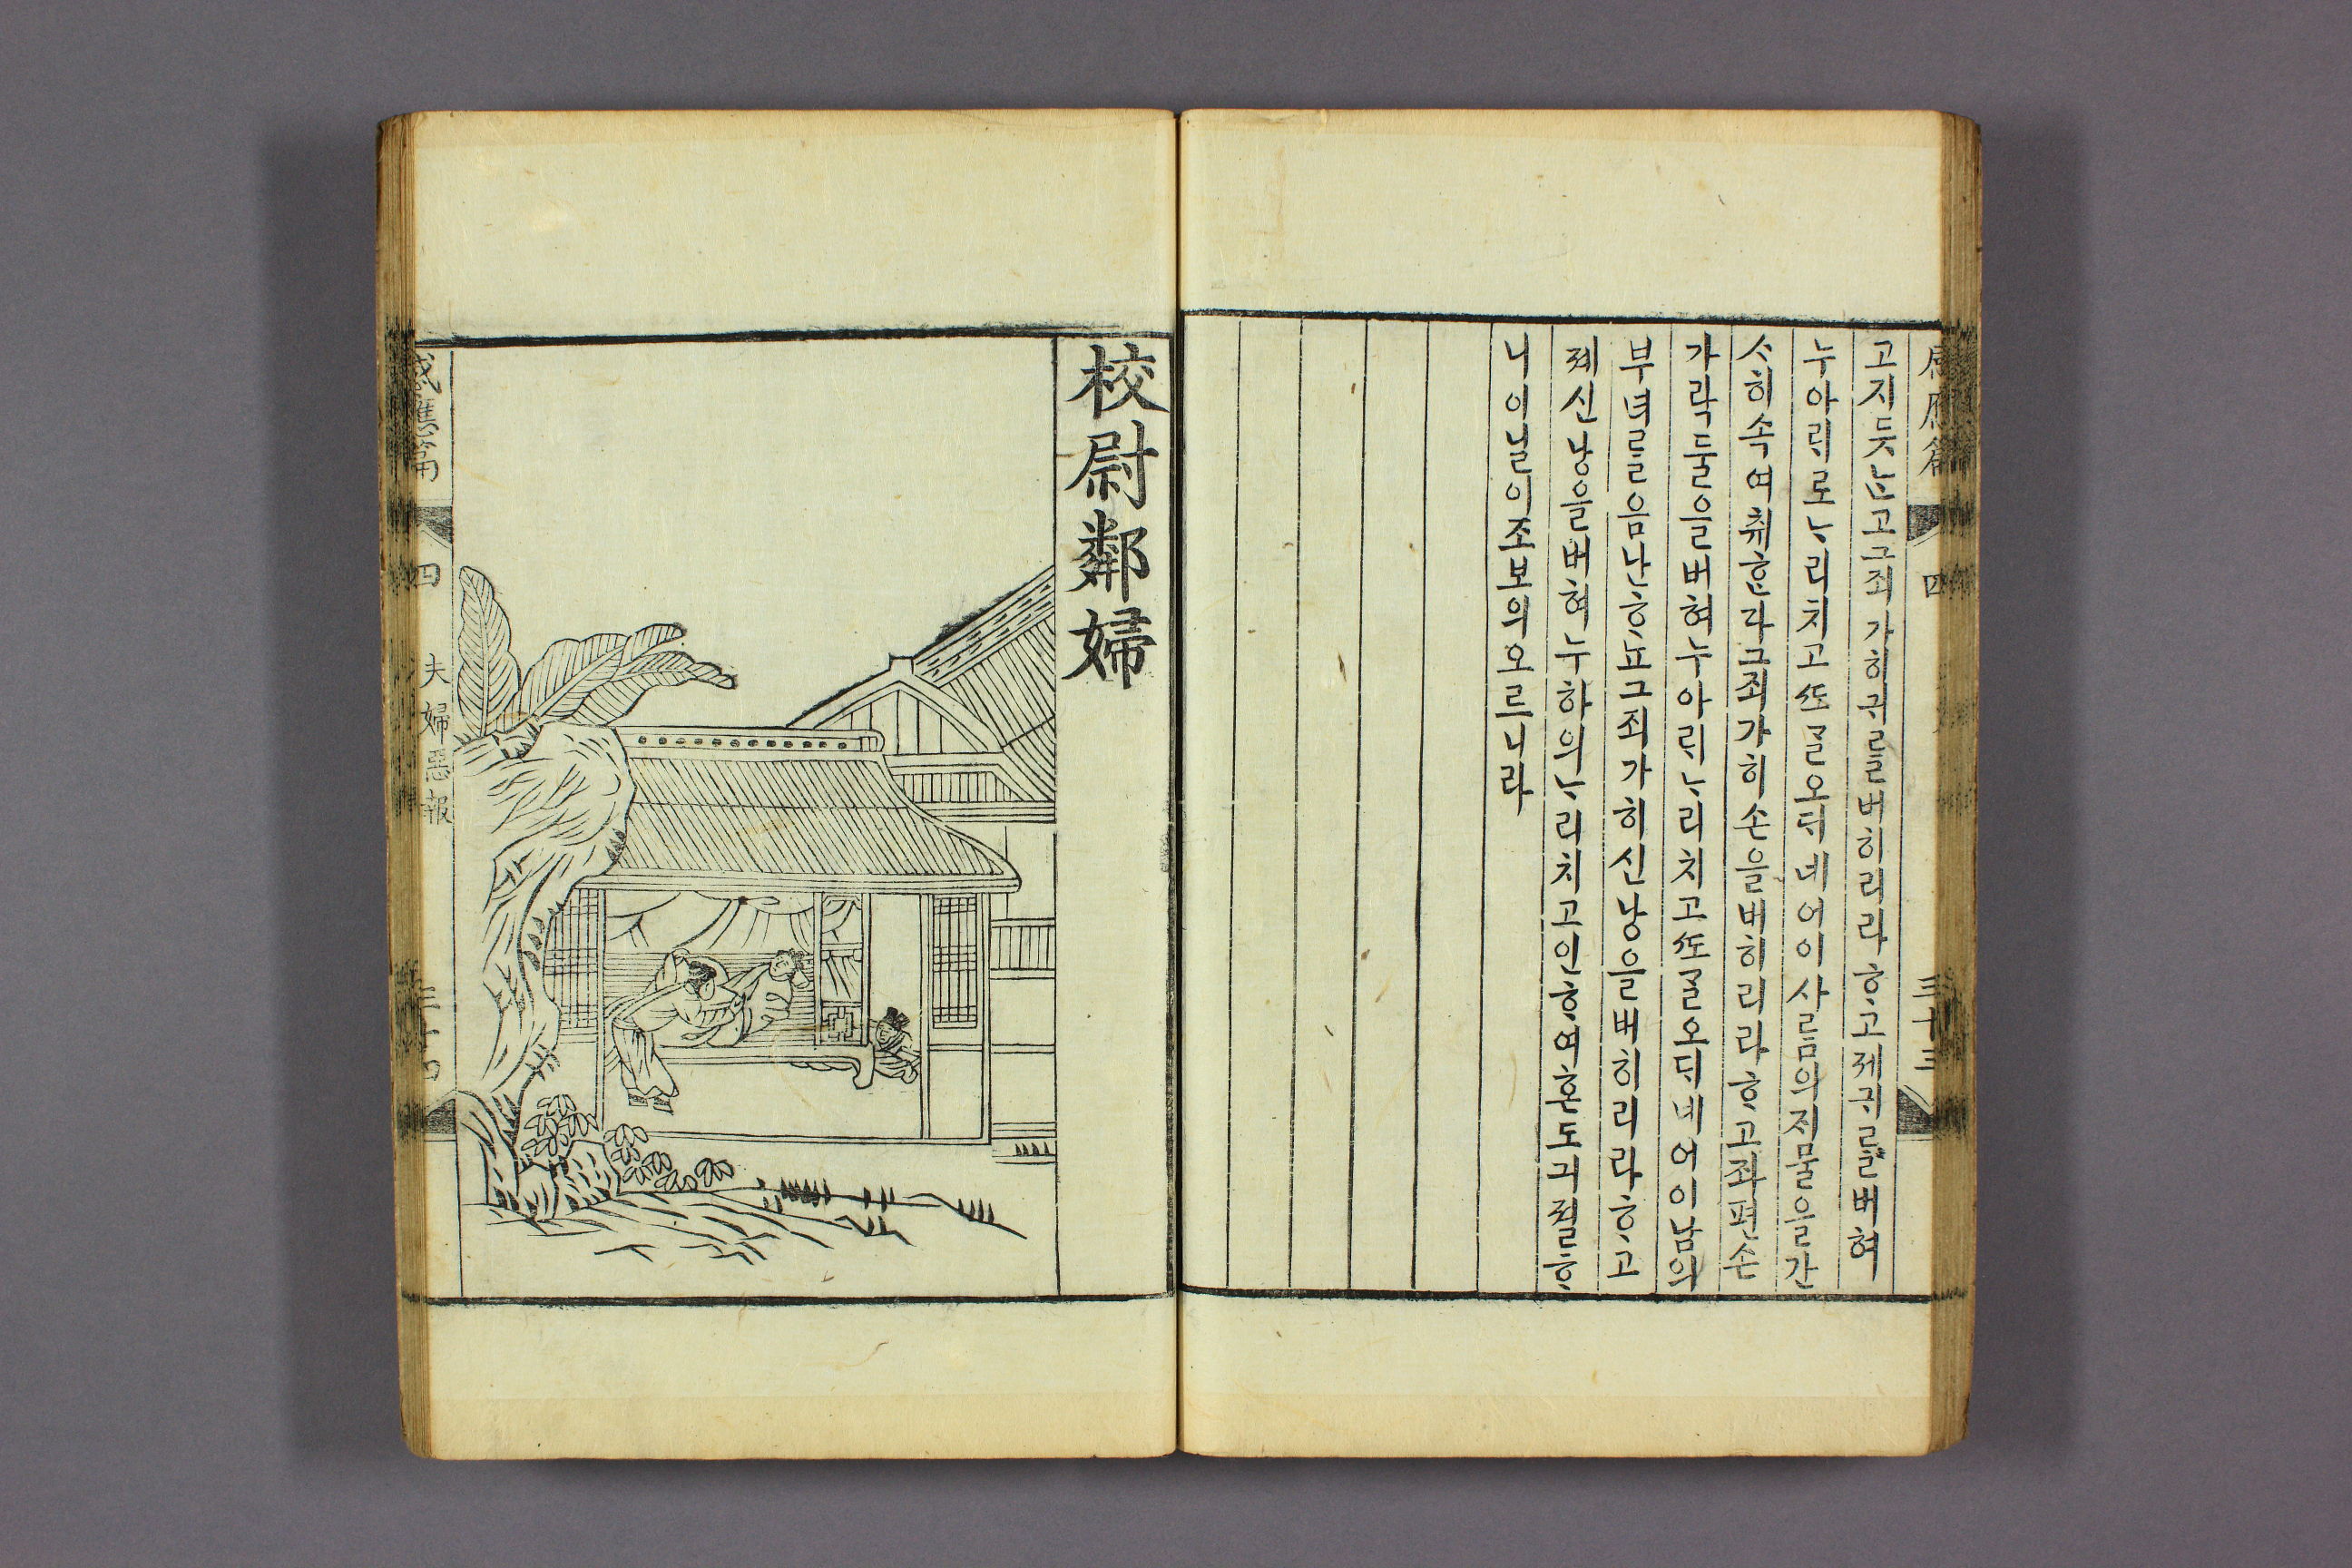 感應篇 四 三十三
고지듯ᄂᆞᆫ고그죄가히귀ᄅᆞᆯ버히리라ᄒᆞ고제귀ᄅᆞᆯ버혀
누아ᄅᆡ로ᄂᆞ리치고ᄯᅩᄀᆞᆯ오ᄃᆡ네어이사ᄅᆞᆷ의ᄌᆡ물을간
ᄉᆞ히속여취ᄒᆞᆫ다그죄가히손을버히리라ᄒᆞ고좌편손
가락둘을버혀누아ᄅᆡᄂᆞ리치고ᄯᅩᄀᆞᆯ오ᄃᆡ네어이남의
부녀ᄅᆞᆯ음난ᄒᆞ뇨그죄가히신낭을버히리라ᄒᆞ고
제신낭을버혀누하의ᄂᆞ리치고인ᄒᆞ여혼도긔졀ᄒᆞ
니이날이조보의오르니라
校尉鄰婦
感應篇 四 夫婦惡報 三十四